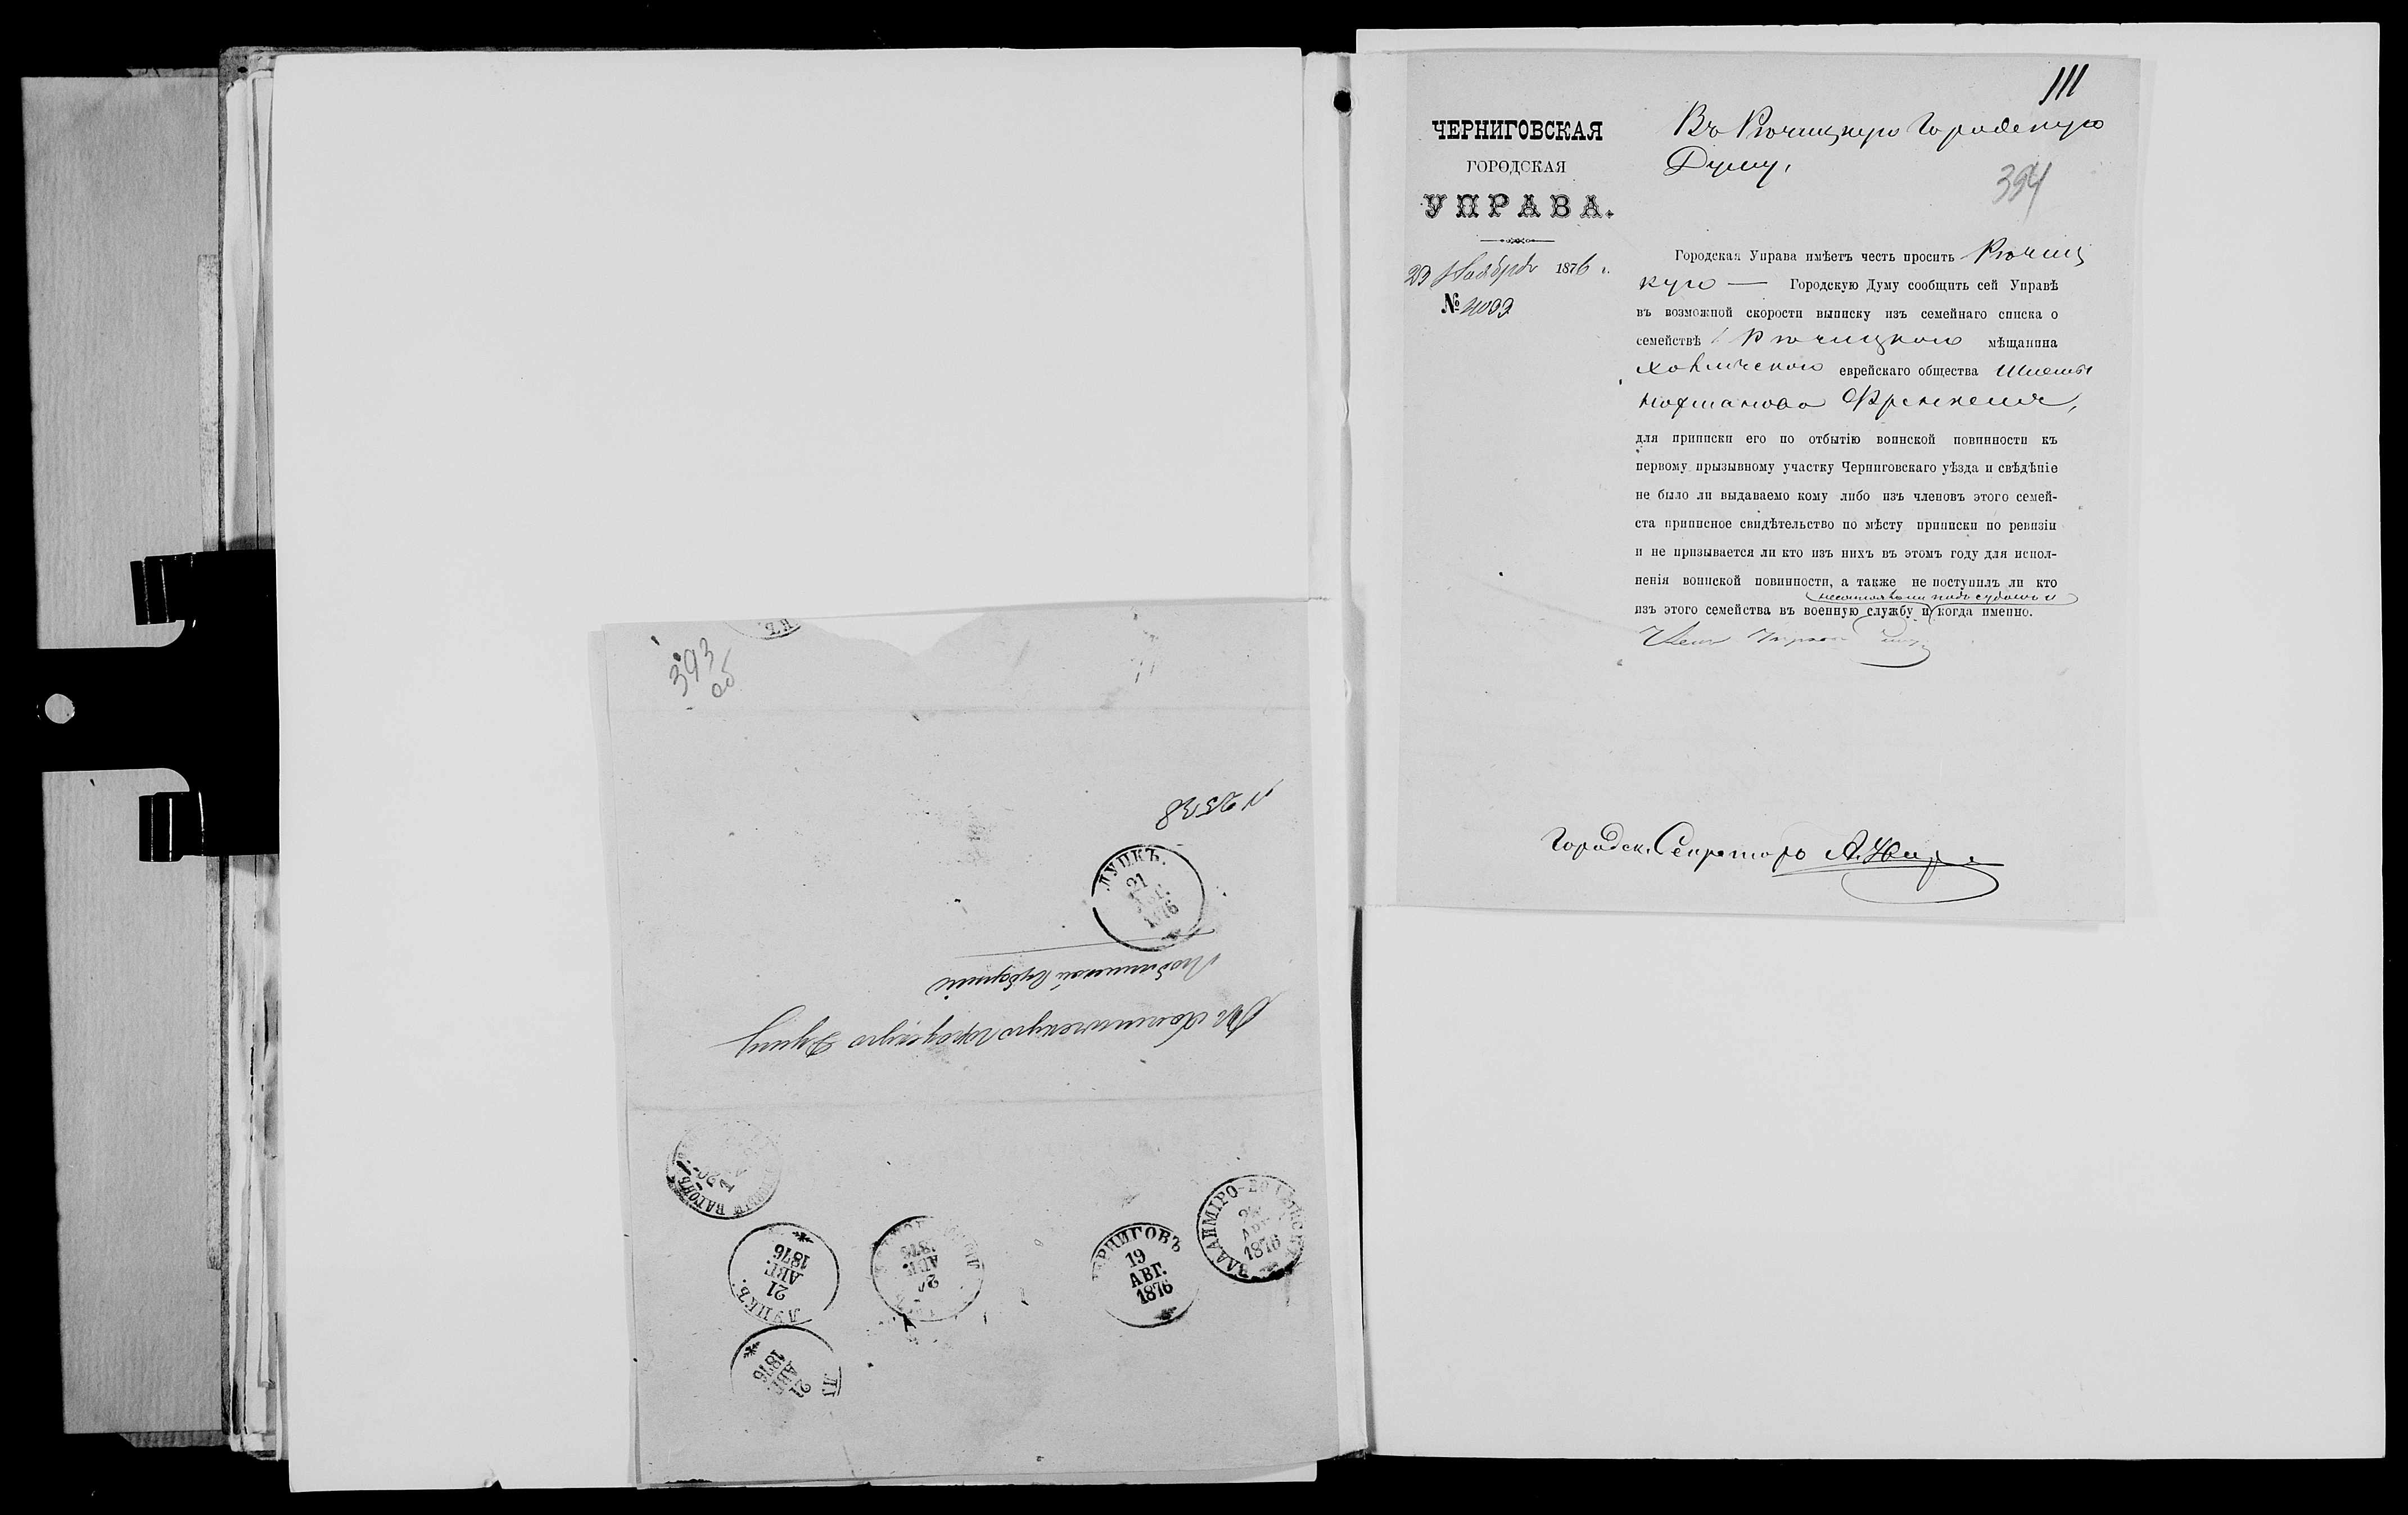 393
об
№ 2538
ЛУЦКЪ.
21
АВГ.
1876
Люблинской Губерніи
Въ Холмическую Городскую Думу
ВАГОНЪ
20
ЛУЦКЪ.
21
АВГ.
1876
24
АВГ.
1876
ЧЕРНИГОВЪ
19
АВГ.
1876
ВЛАДИМІРО-ВОЛЫНСКЪ
АВГ
1876
21
АВГ
1876
111
ЧЕРНИГОВСКАЯ
ГОРОДСКАЯ
УПРАВА.
23 Ноября 1876 г.
№ 4003
Въ Речицкую Городскую
Думу,
394
Городская Управа имѣетъ честь просить Речиц
кую — Городскую Думу сообщить сей Управѣ
въ возможной скорости выписку изъ семейнаго списка о
семействѣ Речицкого мѣщанина
Холмичского еврейскаго общества Шлемы
Нохманова Френкеля,
для приписки его по отбытію воинской повинности къ
первому призывному участку Черниговскаго уѣзда и свѣдѣніе
не было ли выдаваемо кому либо изъ членовъ этого семей-
ста приписное свидѣтельство по мѣсту приписки по ревизіи
и не призывается ли кто изъ нихъ въ этомъ году для испол-
ненія воинской повинности, а также не поступилъ ли кто
несостояли подъ судомъ и
изъ этого семейства въ военную службу и когда именно.
Членъ Управы
Городск. Секретарь А.